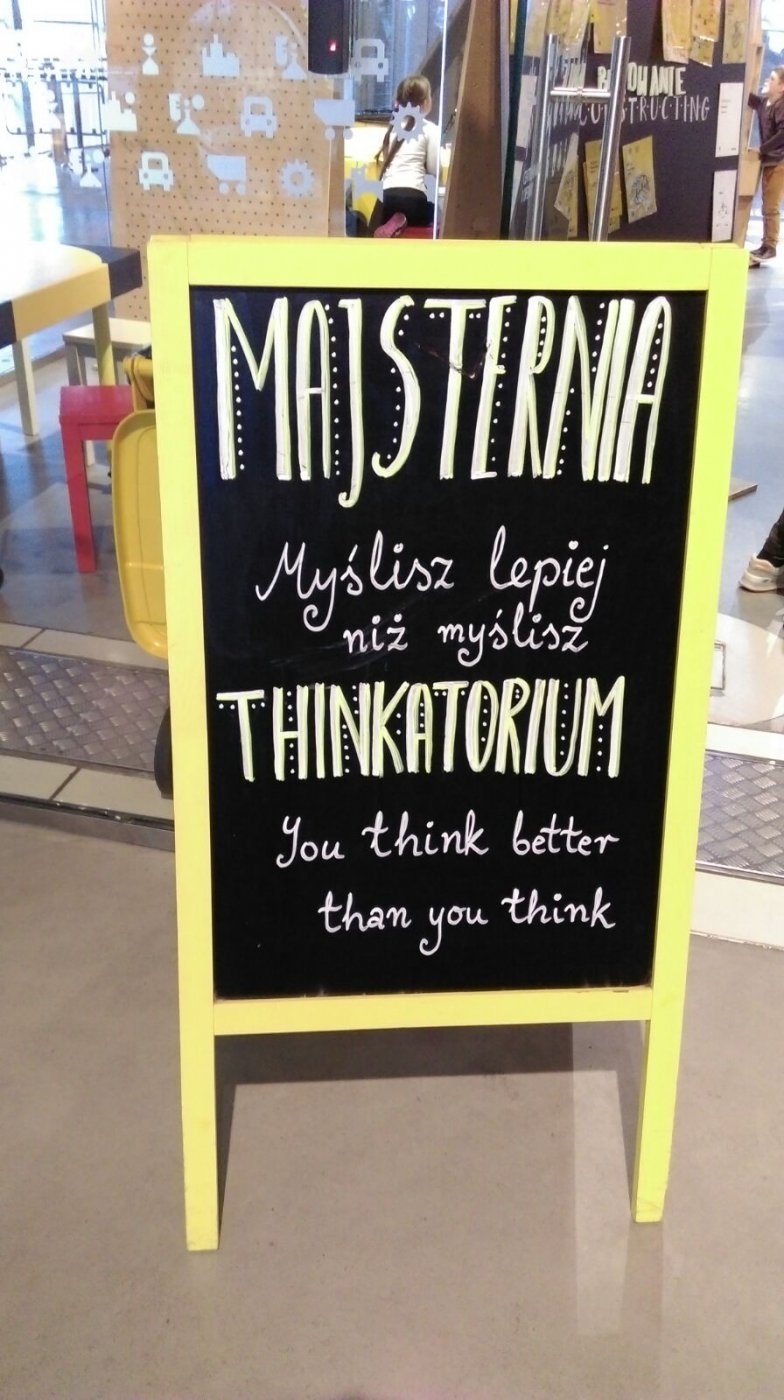 CONSTRUCTING
MAJSTERNIA
Myślisz lepiej
niż myślisz
THINKATORIUM
You think better
than you think